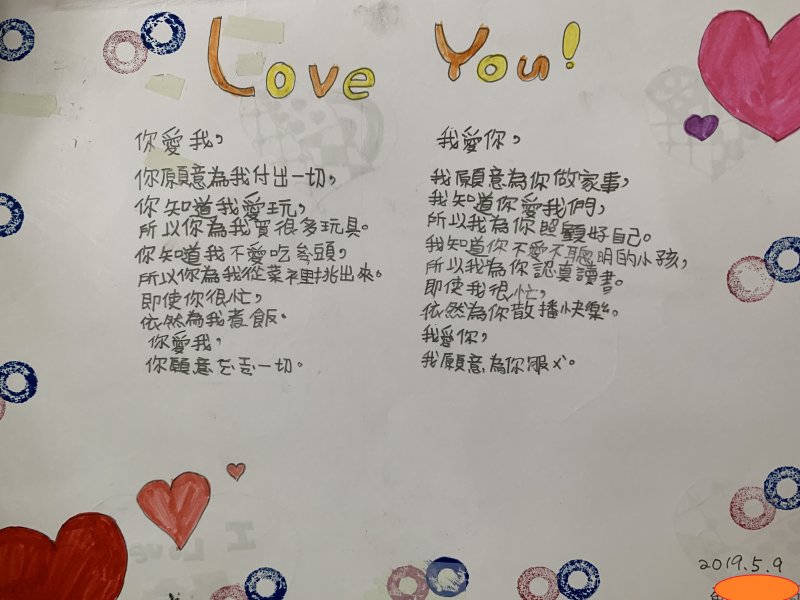 Love You!
你愛我，
你願意為我付出一切，
你知道我愛玩，
所以你為我買很多玩具。
你知道我不愛吃頭，
所以你為我從菜裡挑出來。
即使你很忙，
依然為我煮飯。
你愛我，
你願意丟一切。
我愛你，
我願意為你做家事，
我知道你愛我們，
所以我為你照顧好自己。
我知道你不愛不聰明的小孩，
所以我為你認真讀書。
即使我很忙，
依然為你散播快樂。
我愛你，
我願意為你服ㄨˋ。
2019.5.9